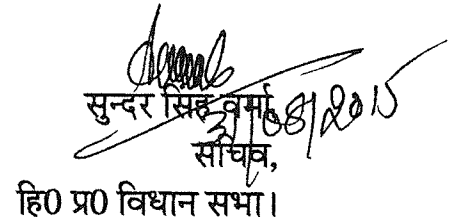 सुन्दर सिंह वर्मा,
31/08/2015
सचिव,
हि0 प्र0 विधान सभा।